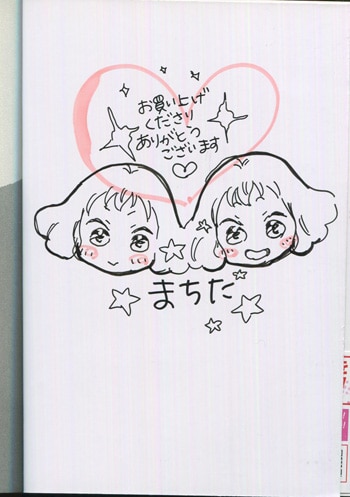 お買い上げ
くださり
ありがとう
ございます
まちた